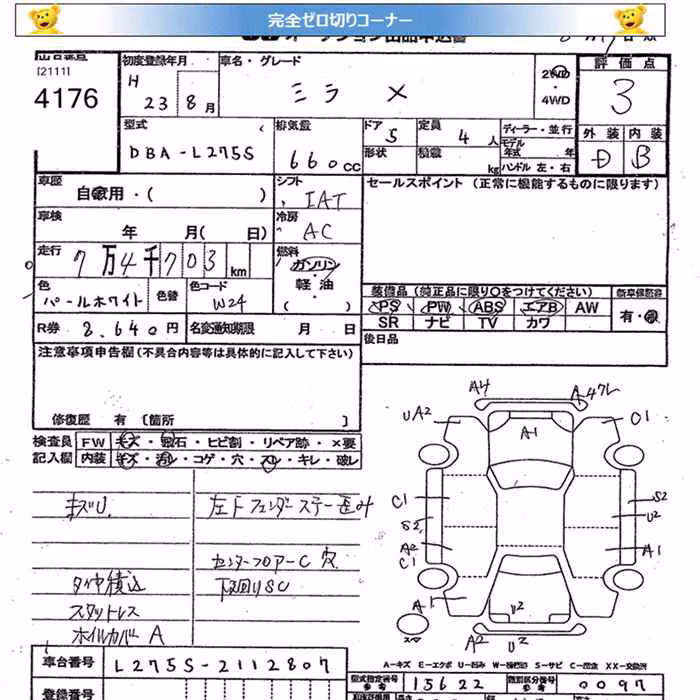 完全ゼロ切りコーナー
[2111]
4176
初度登録年月
H 23年 8月
車名・グレード
ミラ X
2WD・4WD
評価点
3
型式
DBA-L275S
排気量
660CC
ドア 5
形状
定員 4人
積載 kg
ディーラー・並行
モデル年式 年
ハンドル 左・右
外装 内装
D B
車歴
自家用・( )
シフト
IAT
セールスポイント (正常に機能するものに限ります)
車検
年 月( 日)
冷房
AC
走行
7万4千703km
燃料
ガソリン・軽油・( )
色
パールホワイト
色替
色コード
W24
装備品 (純正品に限り○をつけてください)
PS PW ABS エアB AW
SR ナビ TV カワ
有・
R券 8,640円
名変通知期限 月 日
後日品
注意事項申告欄(不具合内容等は具体的に記入して下さい)
修復歴 有 [箇所 ]
検査員 FW キズ・飛石・ヒビ割・リペア跡・×要
記入欄 内装 キズ・汚レ・コゲ・穴・スレ・キレ・破レ
キズU
左Fフェンダーステー歪み
センターフロアーC 穴
タイヤ積込
下回りSC
スタットレス
ホイルカバーA
A4
UA2
A1
C1
S2
A2
C1
A1
O1
S2
U2
A1
U2
A2 U2
A-キズ E-エクボ U-凹み W-補修跡 S-サビ C-腐食 XX-交換済
車台番号 L275S-2112807
型式指定番号 参考 15622
類別区分番号 参考 0097
登録番号